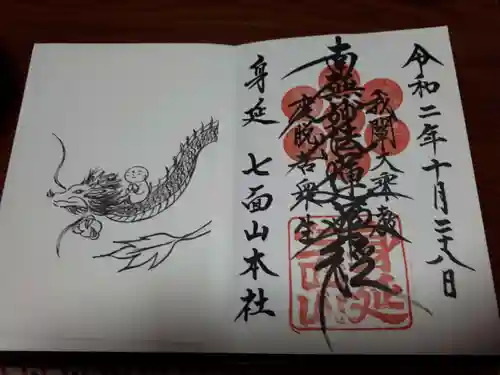 令和二年十月二十八日
我聞大乗教
南無妙法蓮華経
度脱苦衆生
身延 七面山本社